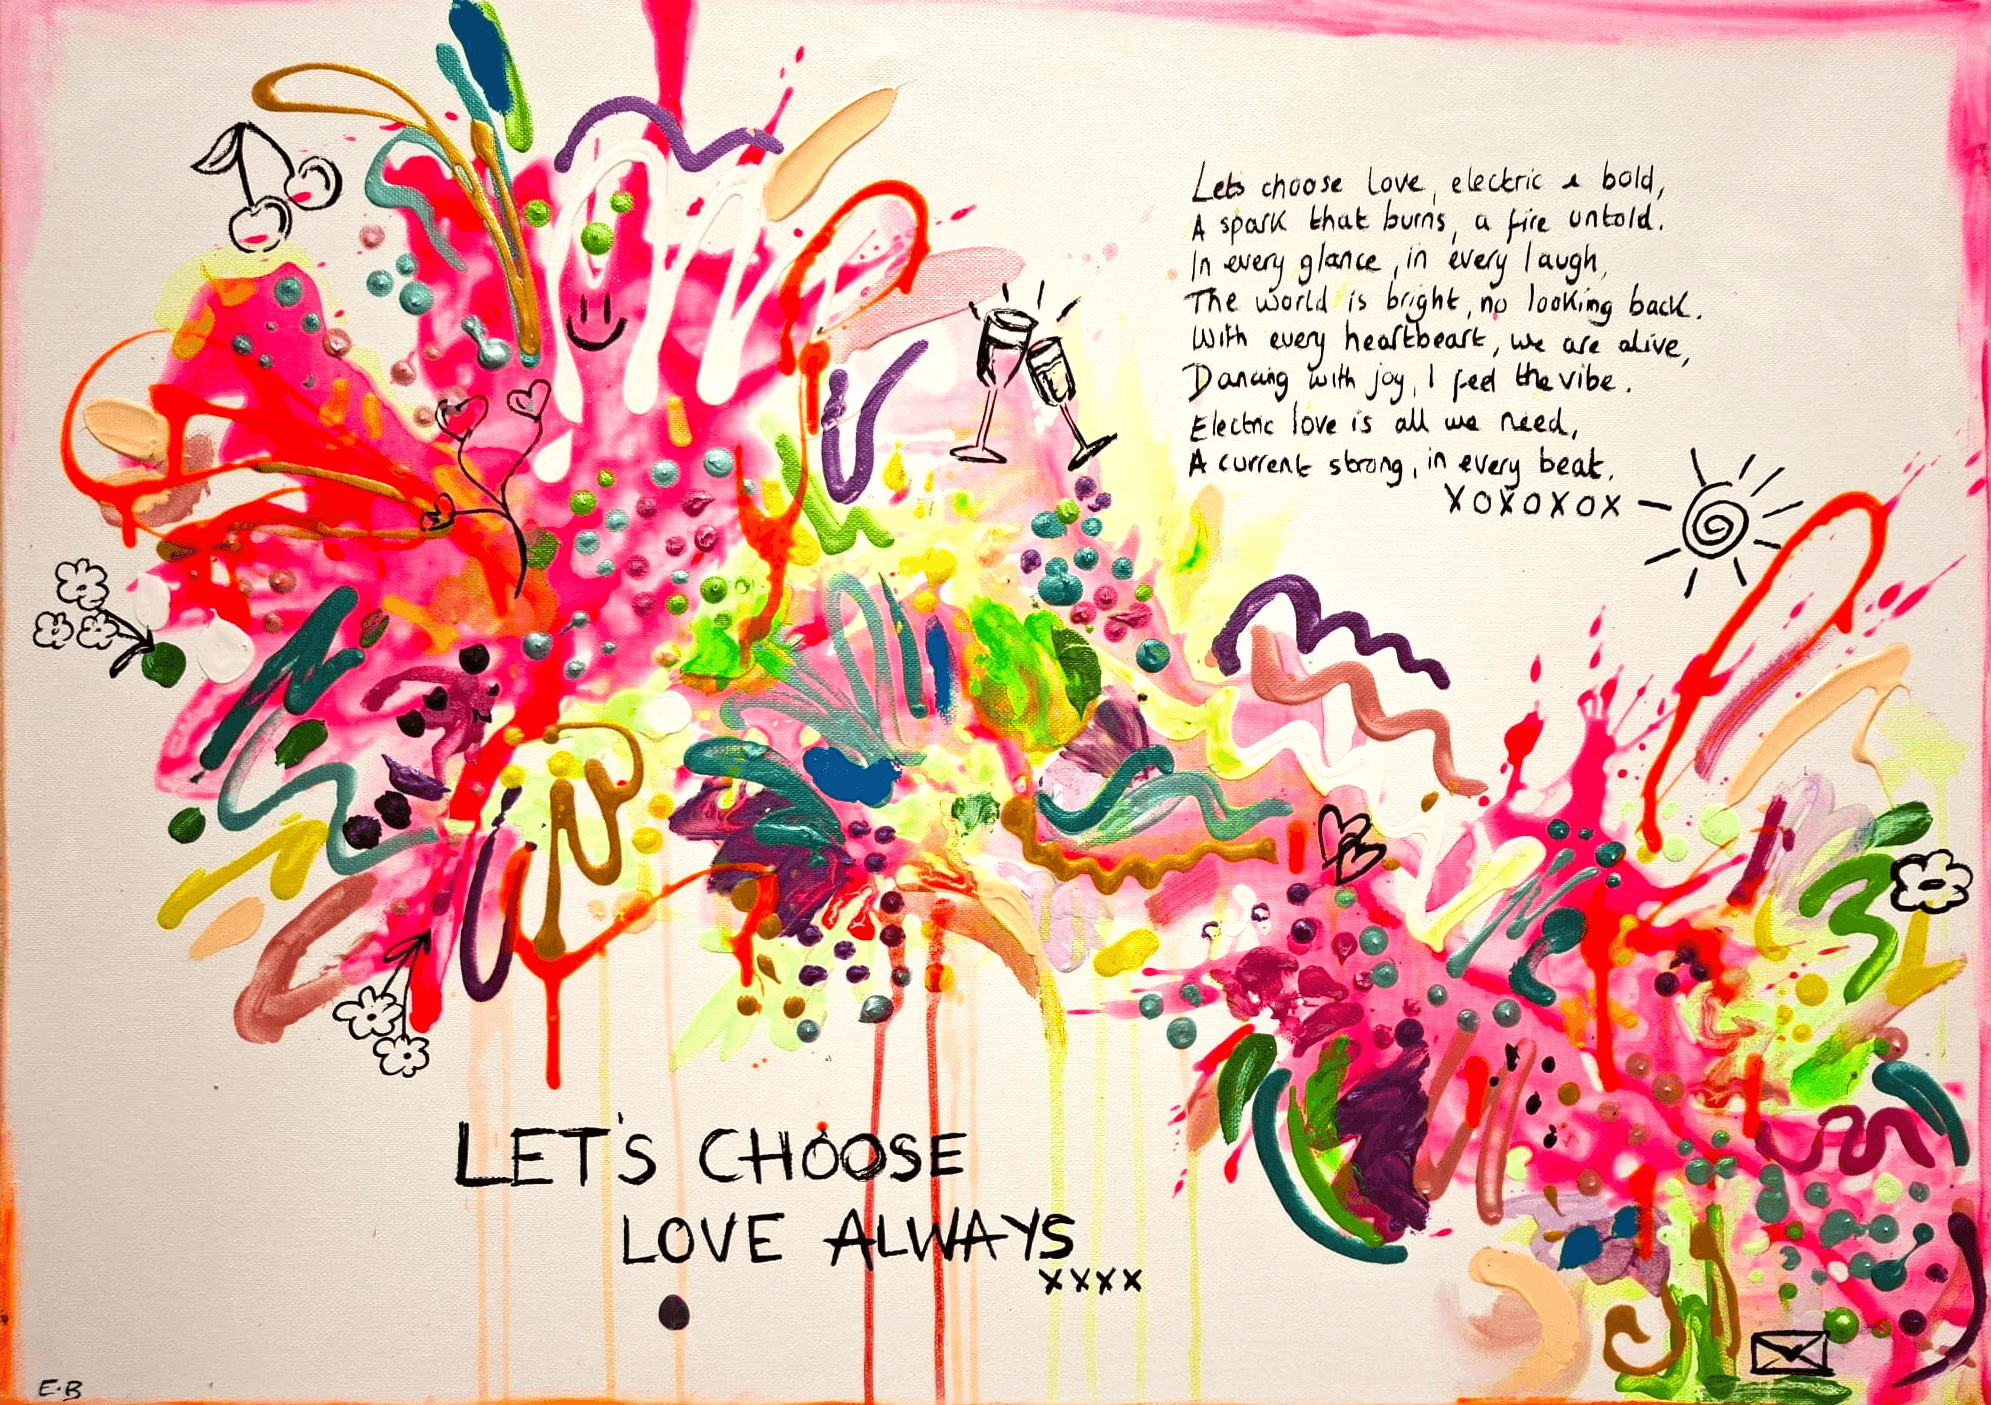 Lets choose love, electric & bold,
A spark that burns, a fire untold.
In every glance, in every laugh,
The world is bright, no looking back.
With every heartbeart, we are alive,
Dancing with joy, I feel the vibe.
Electric love is all we need,
A current strong, in every beat.
XOXOXOX
LET'S CHOOSE
LOVE ALWAYS
xxxx
E.B